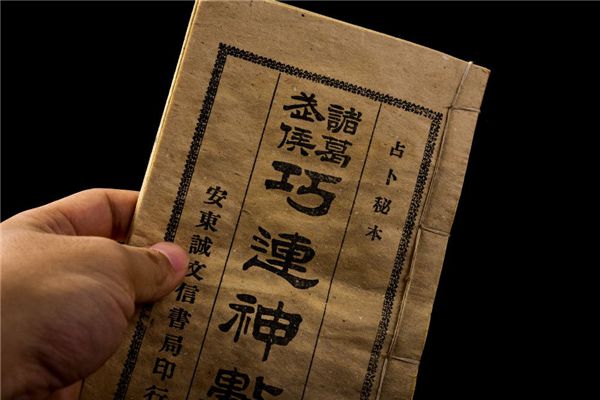 占卜秘本
諸葛
武侯
巧連神
安東誠文信書局印行